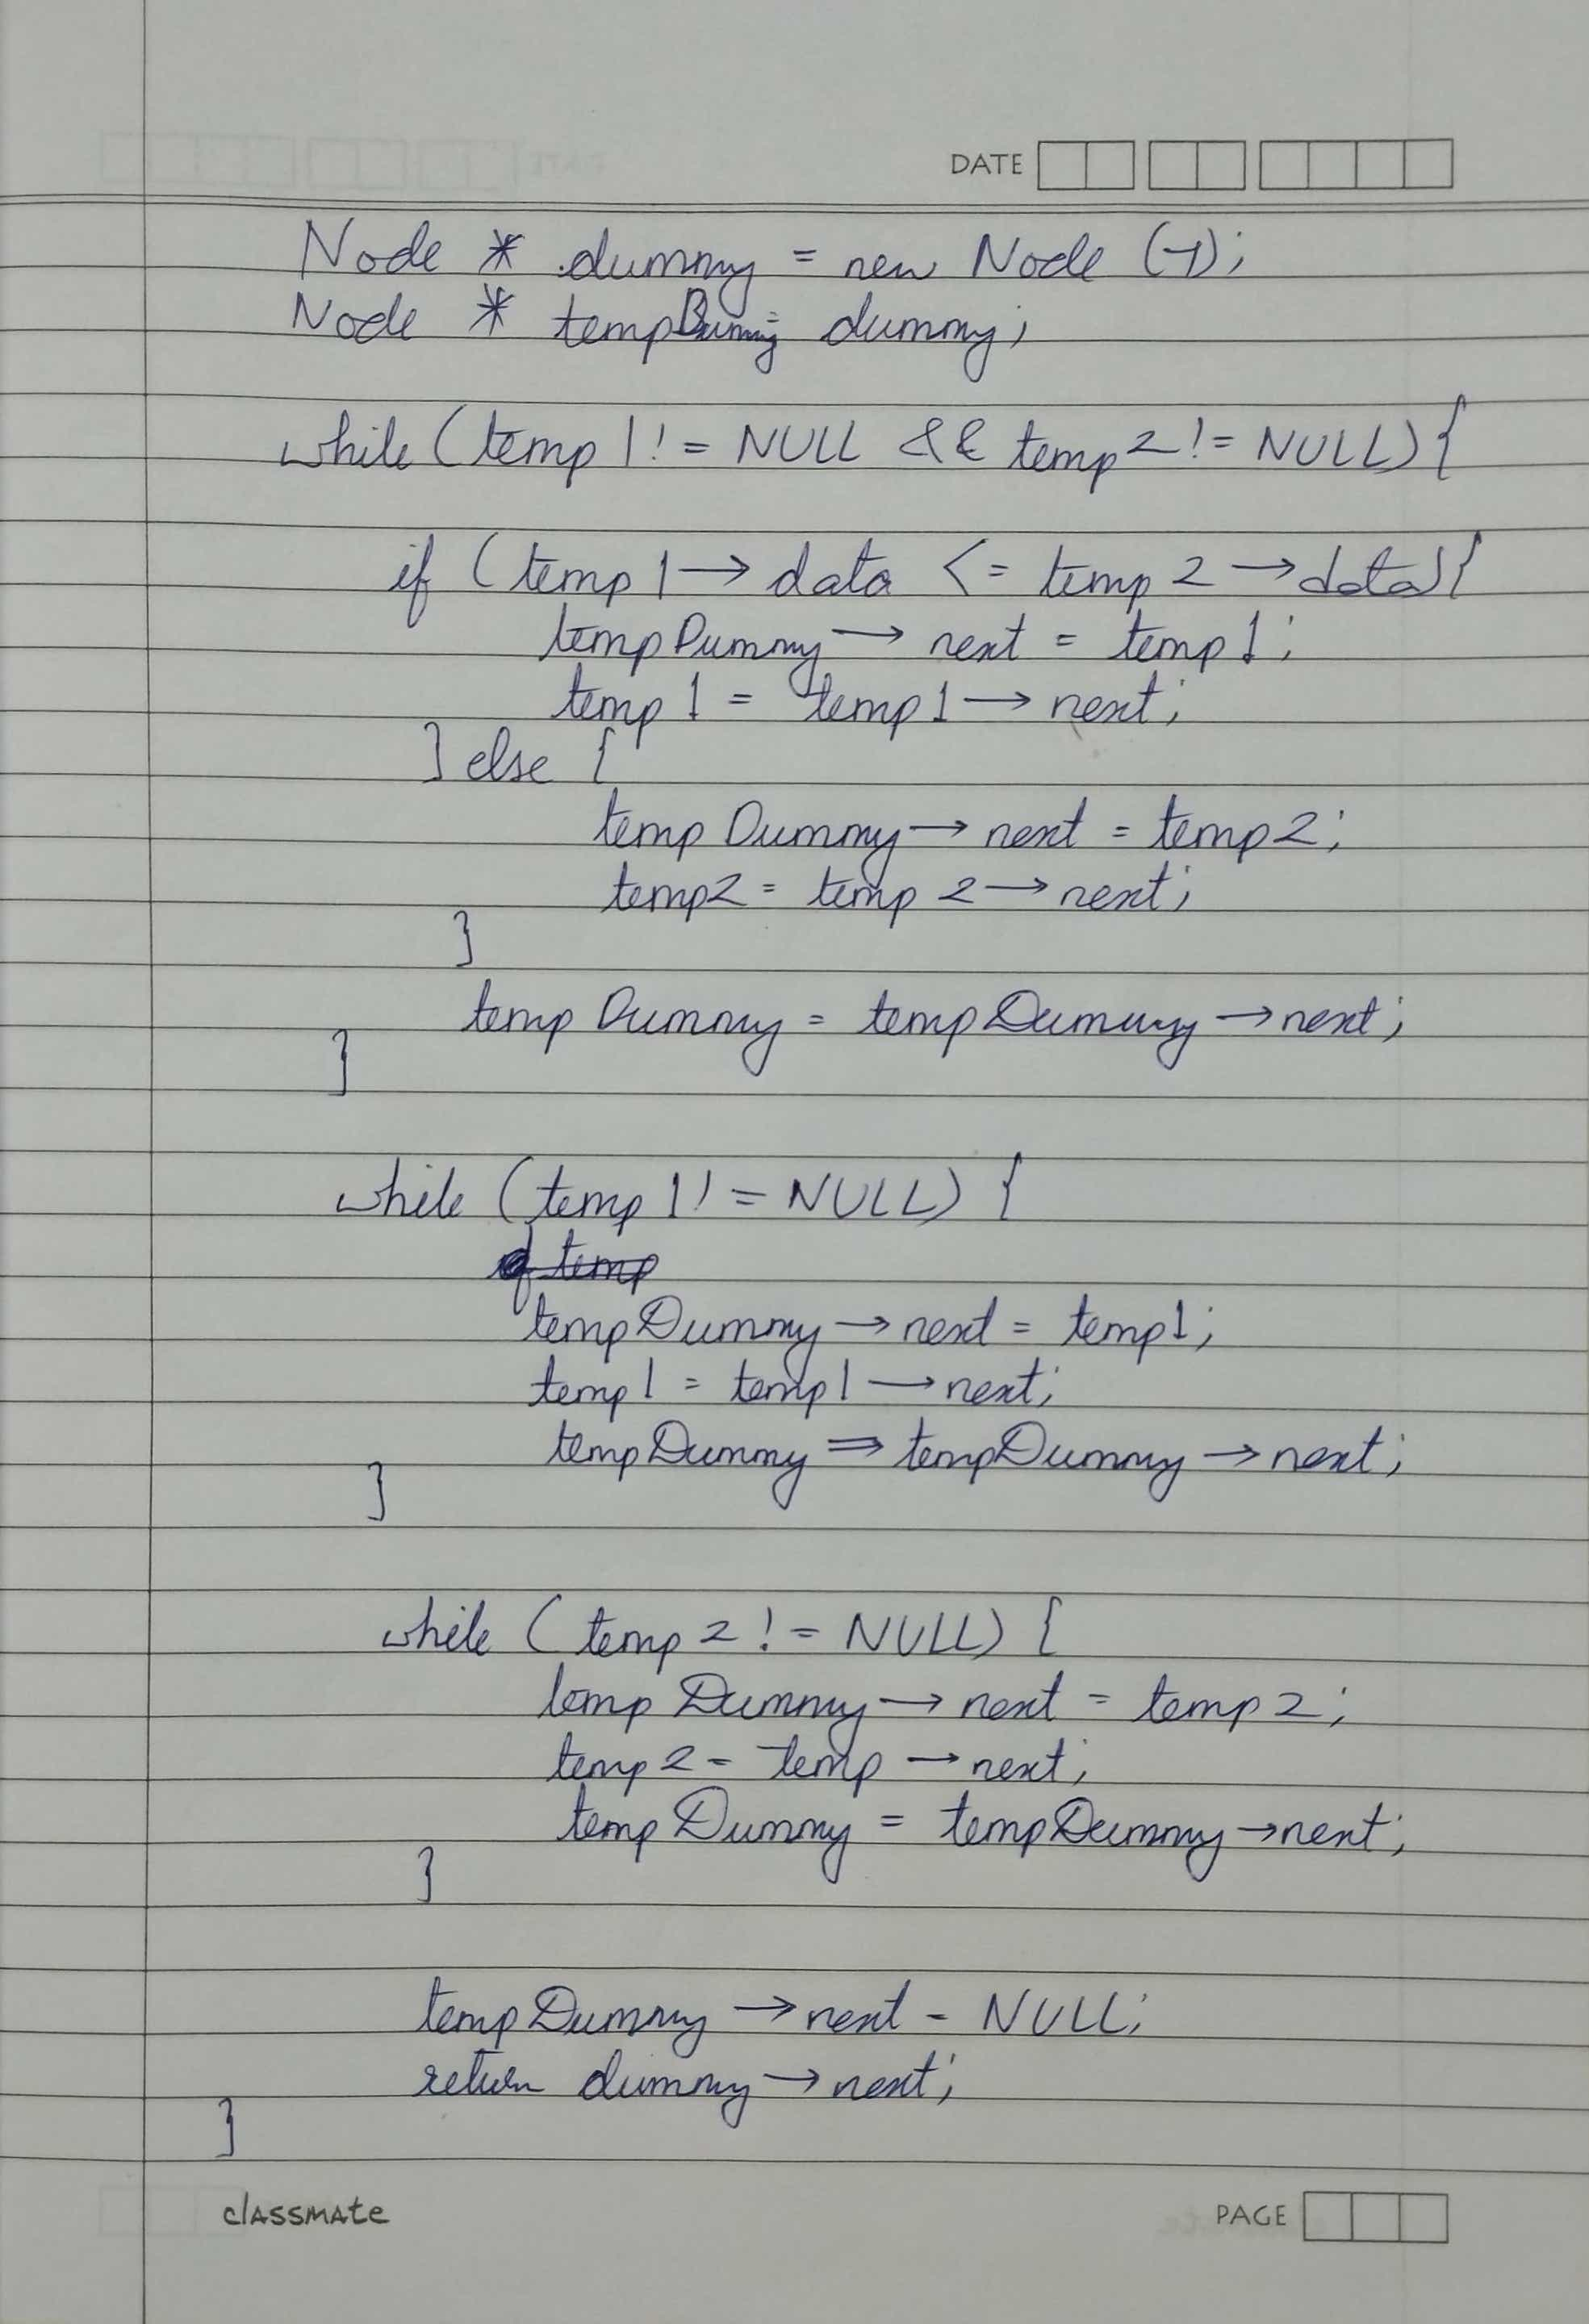 DATE
Node * dummy = new Node (-1);
Node * tempDummy = dummy;
while (temp1 != NULL && temp2 != NULL) {
if (temp1 → data <= temp2 → data) {
tempDummy → next = temp1;
temp1 = temp1 → next;
} else {
tempDummy → next = temp2;
temp2 = temp2 → next;
}
tempDummy = tempDummy → next;
}
while (temp1 != NULL) {
temp
tempDummy → next = temp1;
temp1 = temp1 → next;
tempDummy = tempDummy → next;
}
while (temp2 != NULL) {
tempDummy → next = temp2;
temp2 = temp → next;
tempDummy = tempDummy → next;
}
tempDummy → next = NULL;
return dummy → next;
}
classmate PAGE